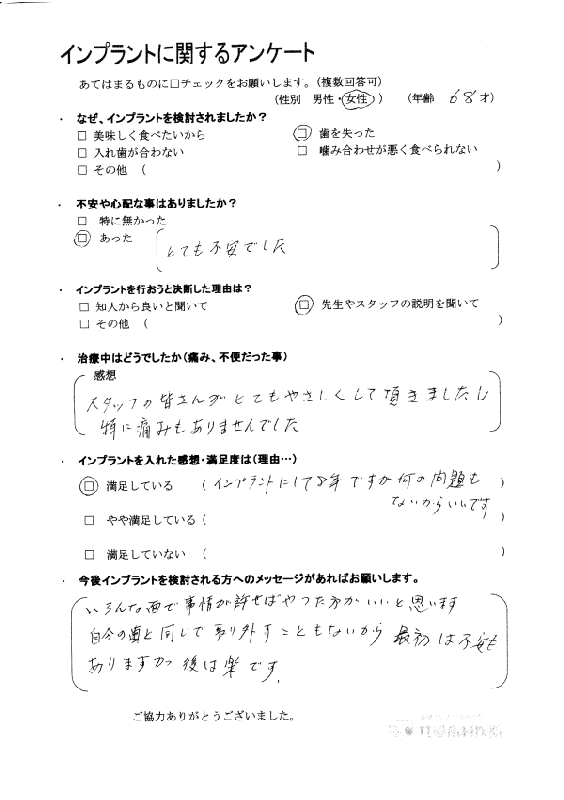 インプラントに関するアンケート
あてはまるものに□チェックをお願いします。（複数回答可）
（性別　男性・女性）　（年齢　68才）
・　なぜ、インプラントを検討されましたか？
□ 美味しく食べたいから　□ 歯を失った
□ 入れ歯が合わない　□ 噛み合わせが悪く食べられない
□ その他　（　）
・　不安や心配な事はありましたか？
□　特に無かった
□　あった
とても不安でした
・　インプラントを行おうと決断した理由は？
□ 知人から良いと聞いて　□ 先生やスタッフの説明を聞いて
□ その他　（　）
・　治療中はどうでしたか（痛み、不便だった事）
感想
スタッフの皆さんがとてもやさしくして頂きましたし
特に痛みもありませんでした
・　インプラントを入れた感想・満足度は（理由…）
□　満足している　（インプラントにして8年ですが何の問題も
ないからいいです）
□　やや満足している（　）
□　満足していない　（　）
・　今後インプラントを検討される方へのメッセージがあればお願いします。
いろんな面で事情が許せばやった方がいいと思います
自分の歯と同じで取り外すこともないから 最初は不安も
ありますが 後は楽です。
ご協力ありがとうございました。